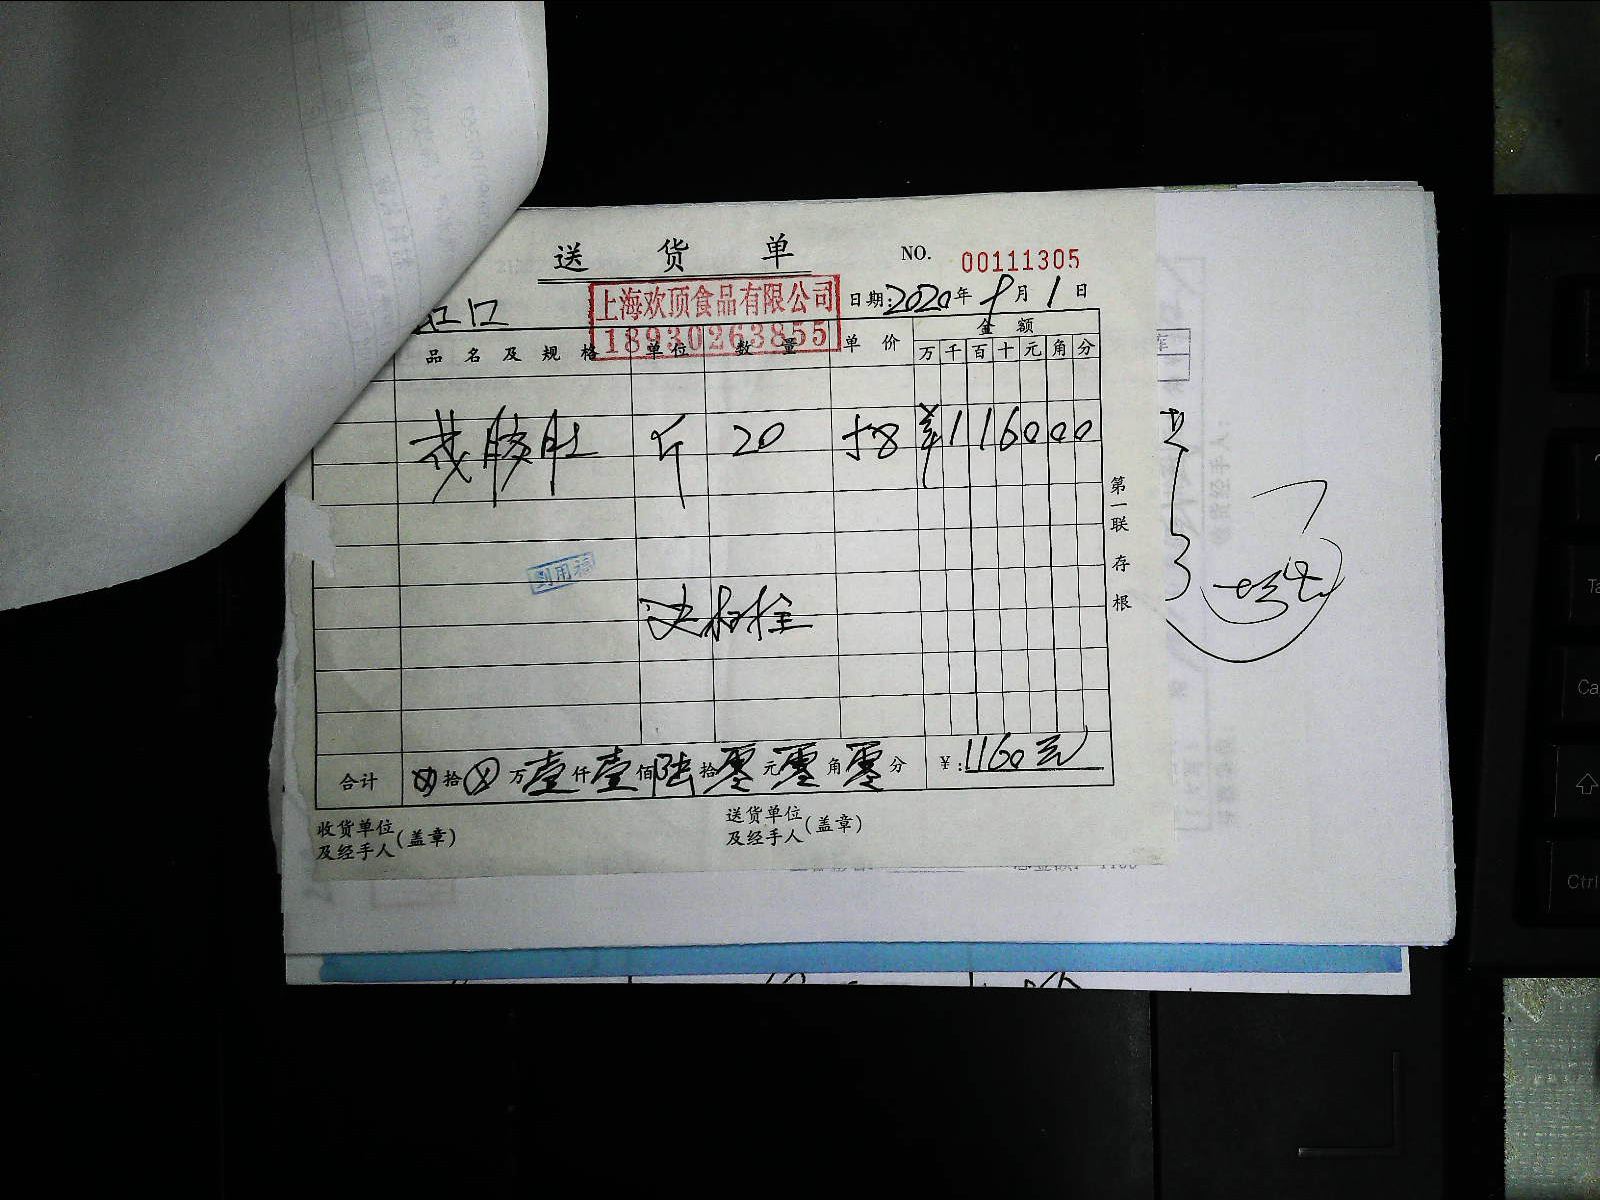 送 货 单
NO. 00111305
上海欢顶食品有限公司
18930263855
日期:2020年 9月 1日
虹口
品 名 及 规 格 单位 数 量 单 价 金 额
万 千 百 十 元 角 分
斤 20 58 ¥116000
第一联 存根
合计 ⊗拾⊗万壹仟壹佰陆拾零元零角零分 ¥:1160元
收货单位及经手人(盖章)
送货单位及经手人(盖章)
Ctrl